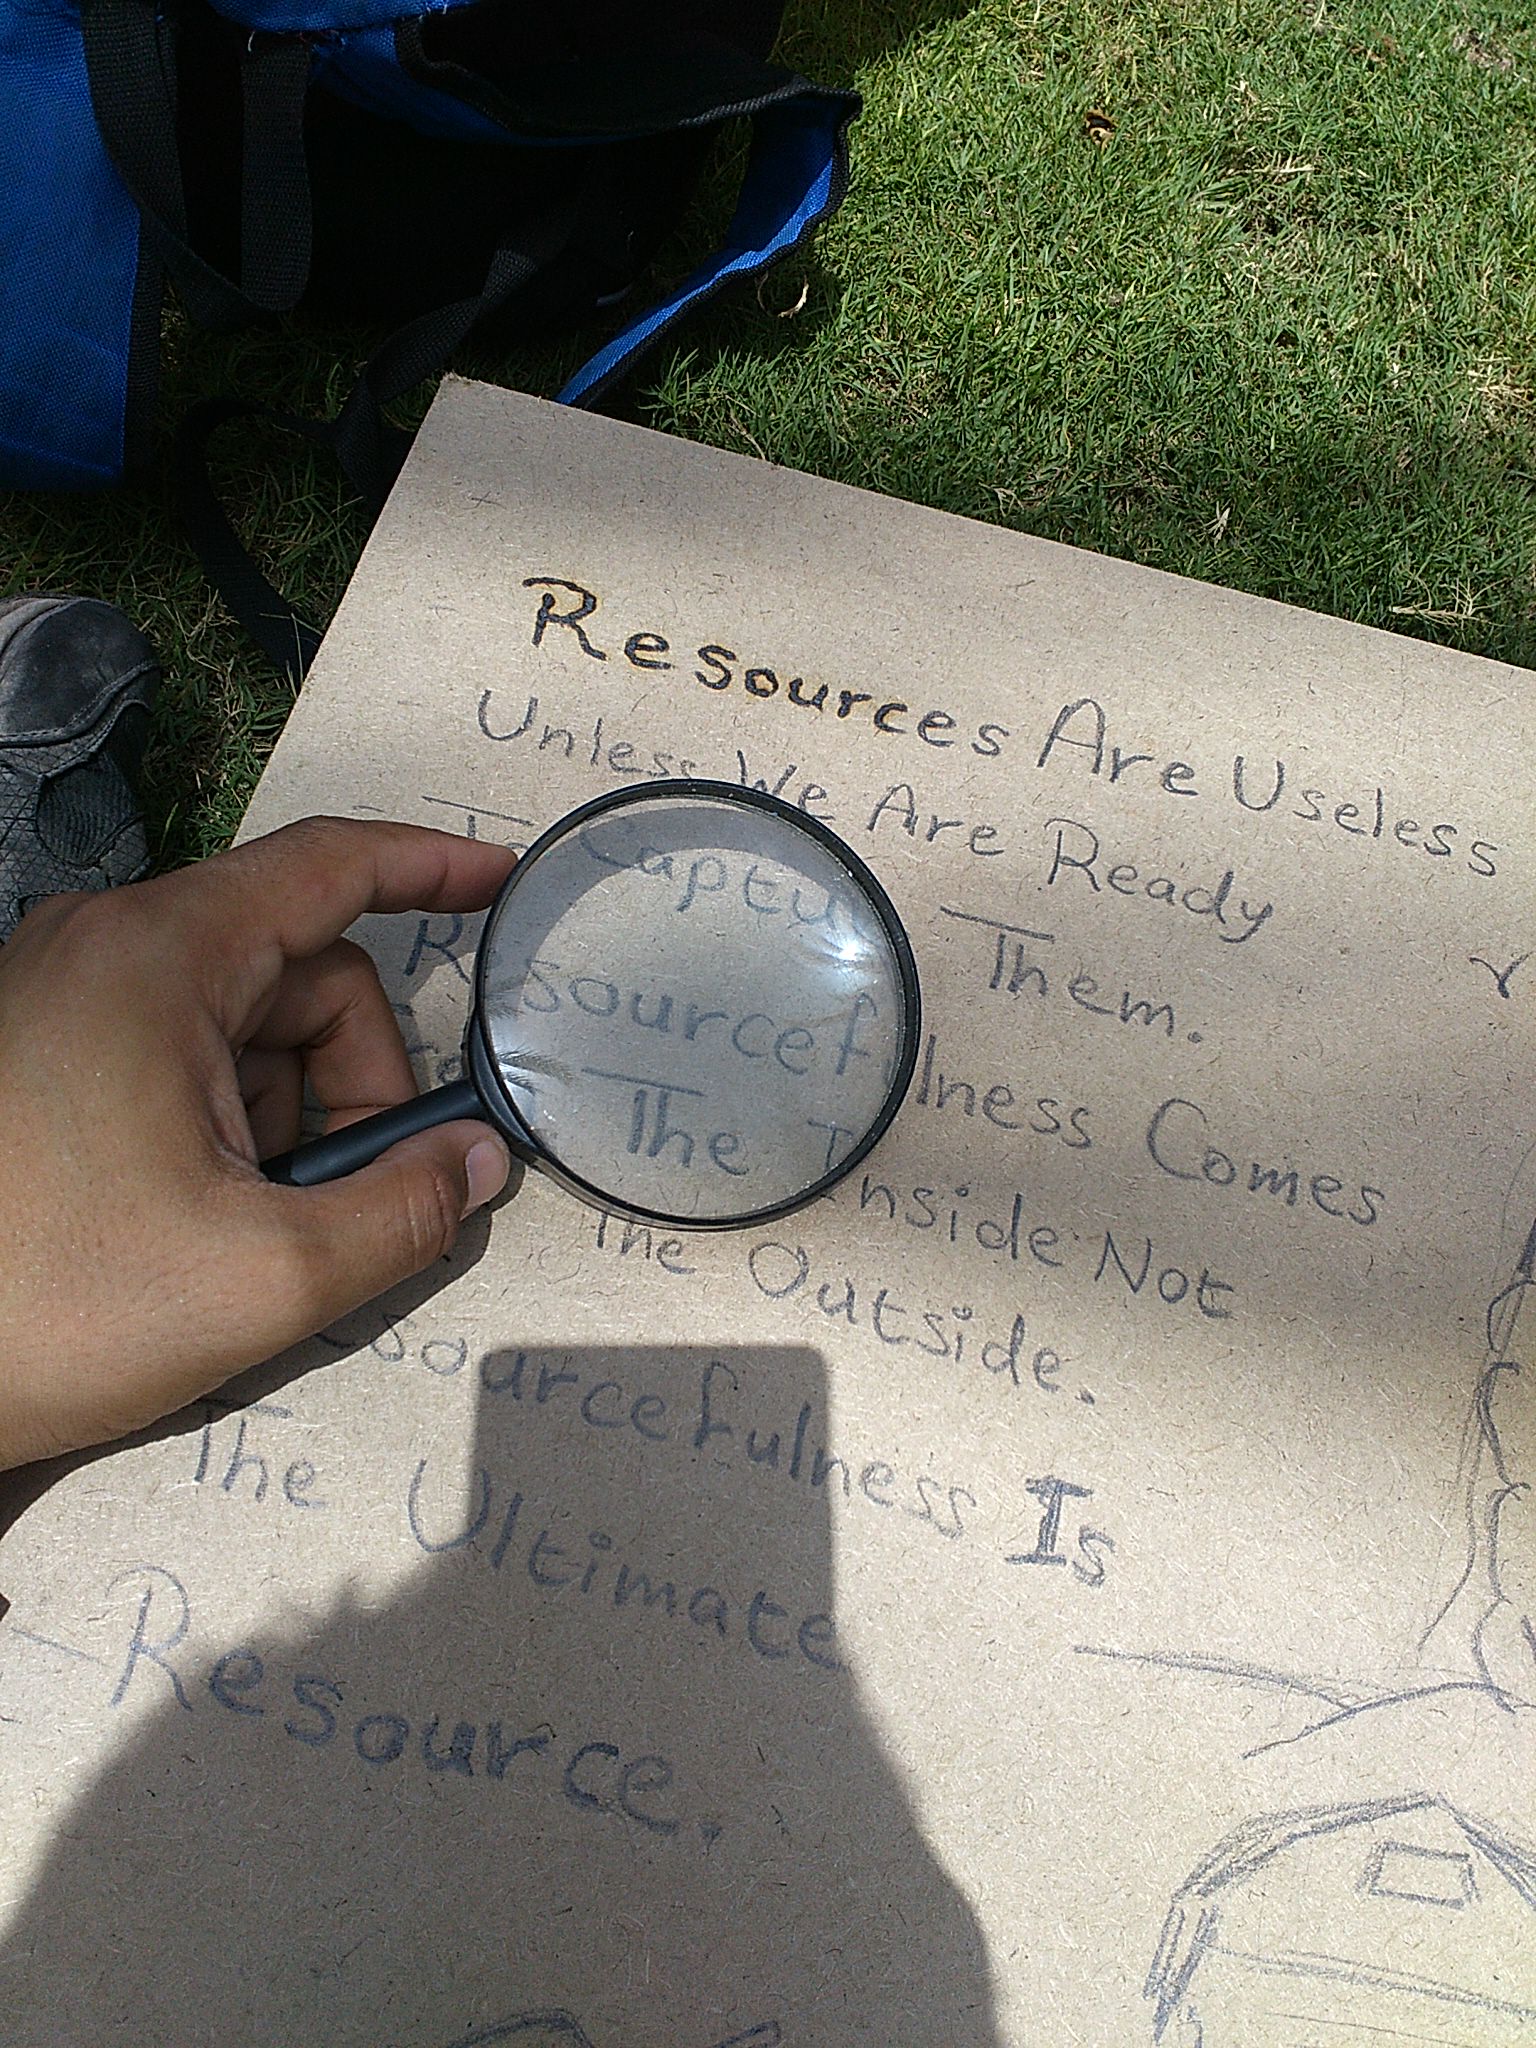 Resources Are Useless
Unless We Are Ready
To Capture Them.
Resourcefulness Comes
The Inside Not
The Outside.
Resourcefulness Is
The Ultimate
Resource.